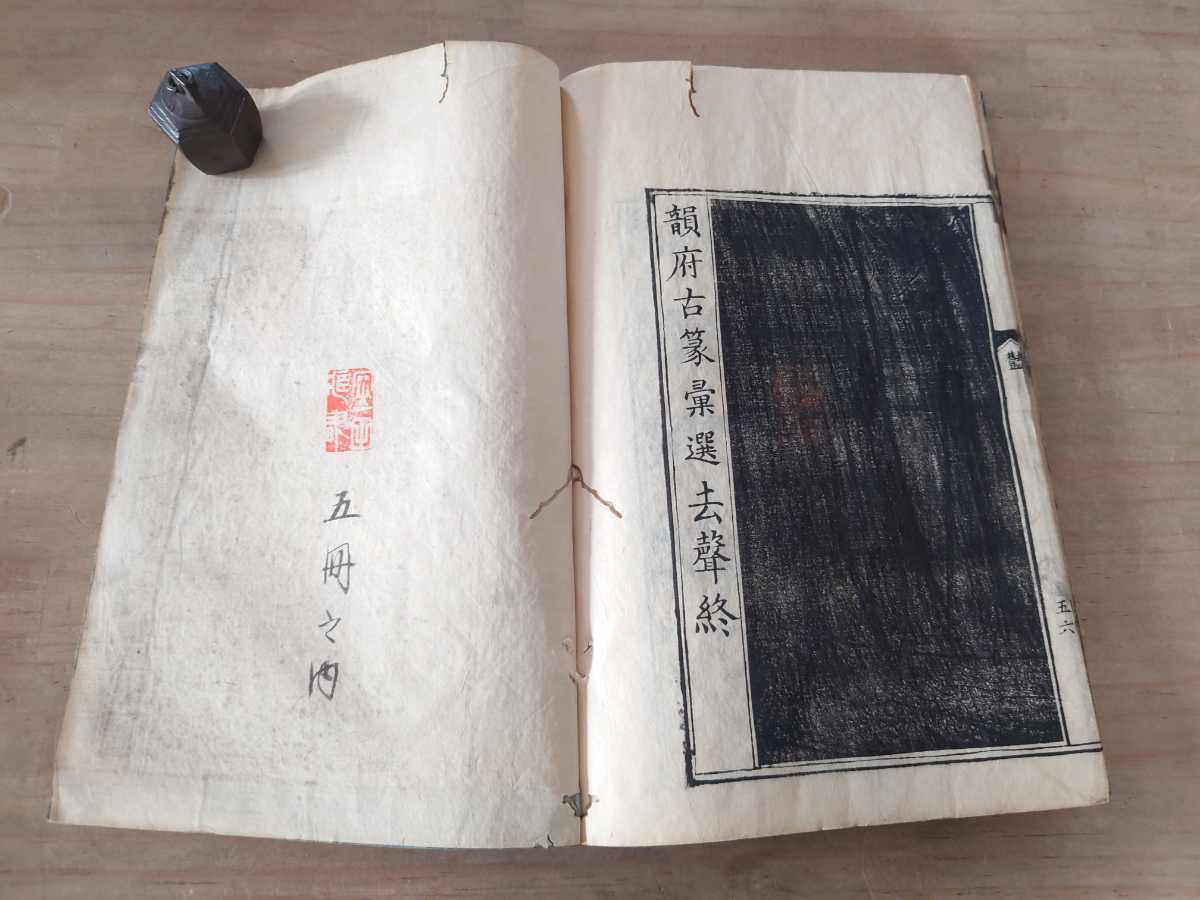 韻府古篆彙選去聲終
五六
五冊之內